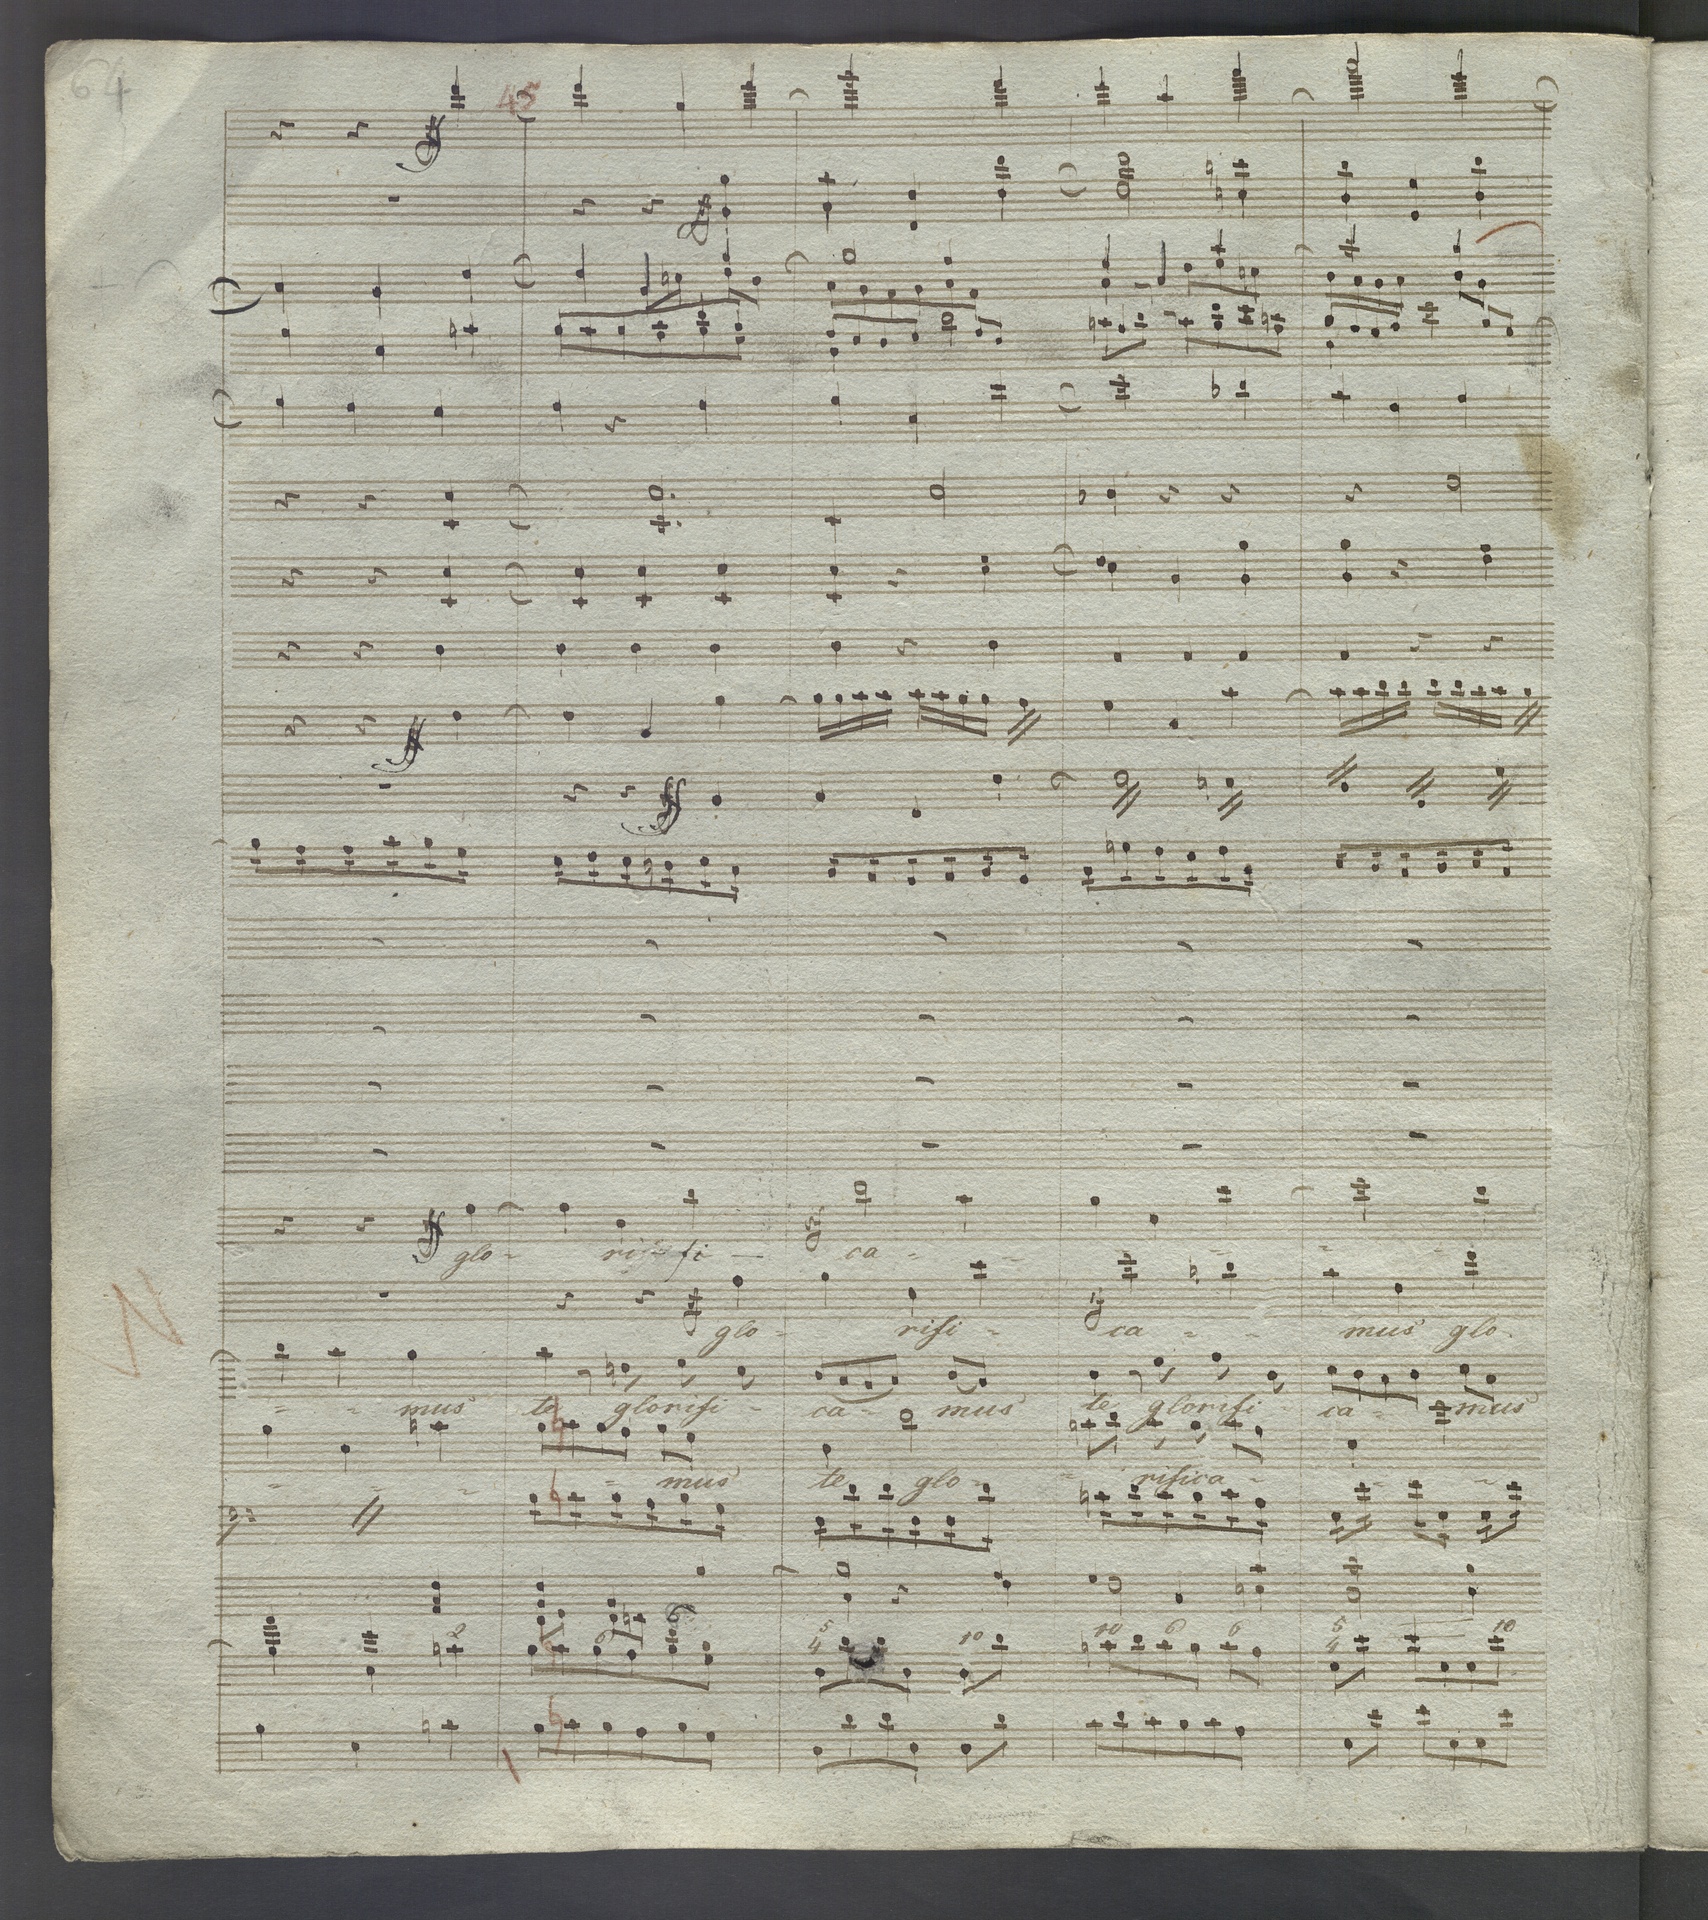 64
45
ff
ff
ff
ff
ff
glo - rifi - ca - - - - -
glo - rifi - ca - - mus glo -
- - mus te glorifi - ca - mus te glorifi - ca - mus
- - - - mus te glo - - rifica - - -
2 6 6 5 4 10 10 6 6 5 4 10